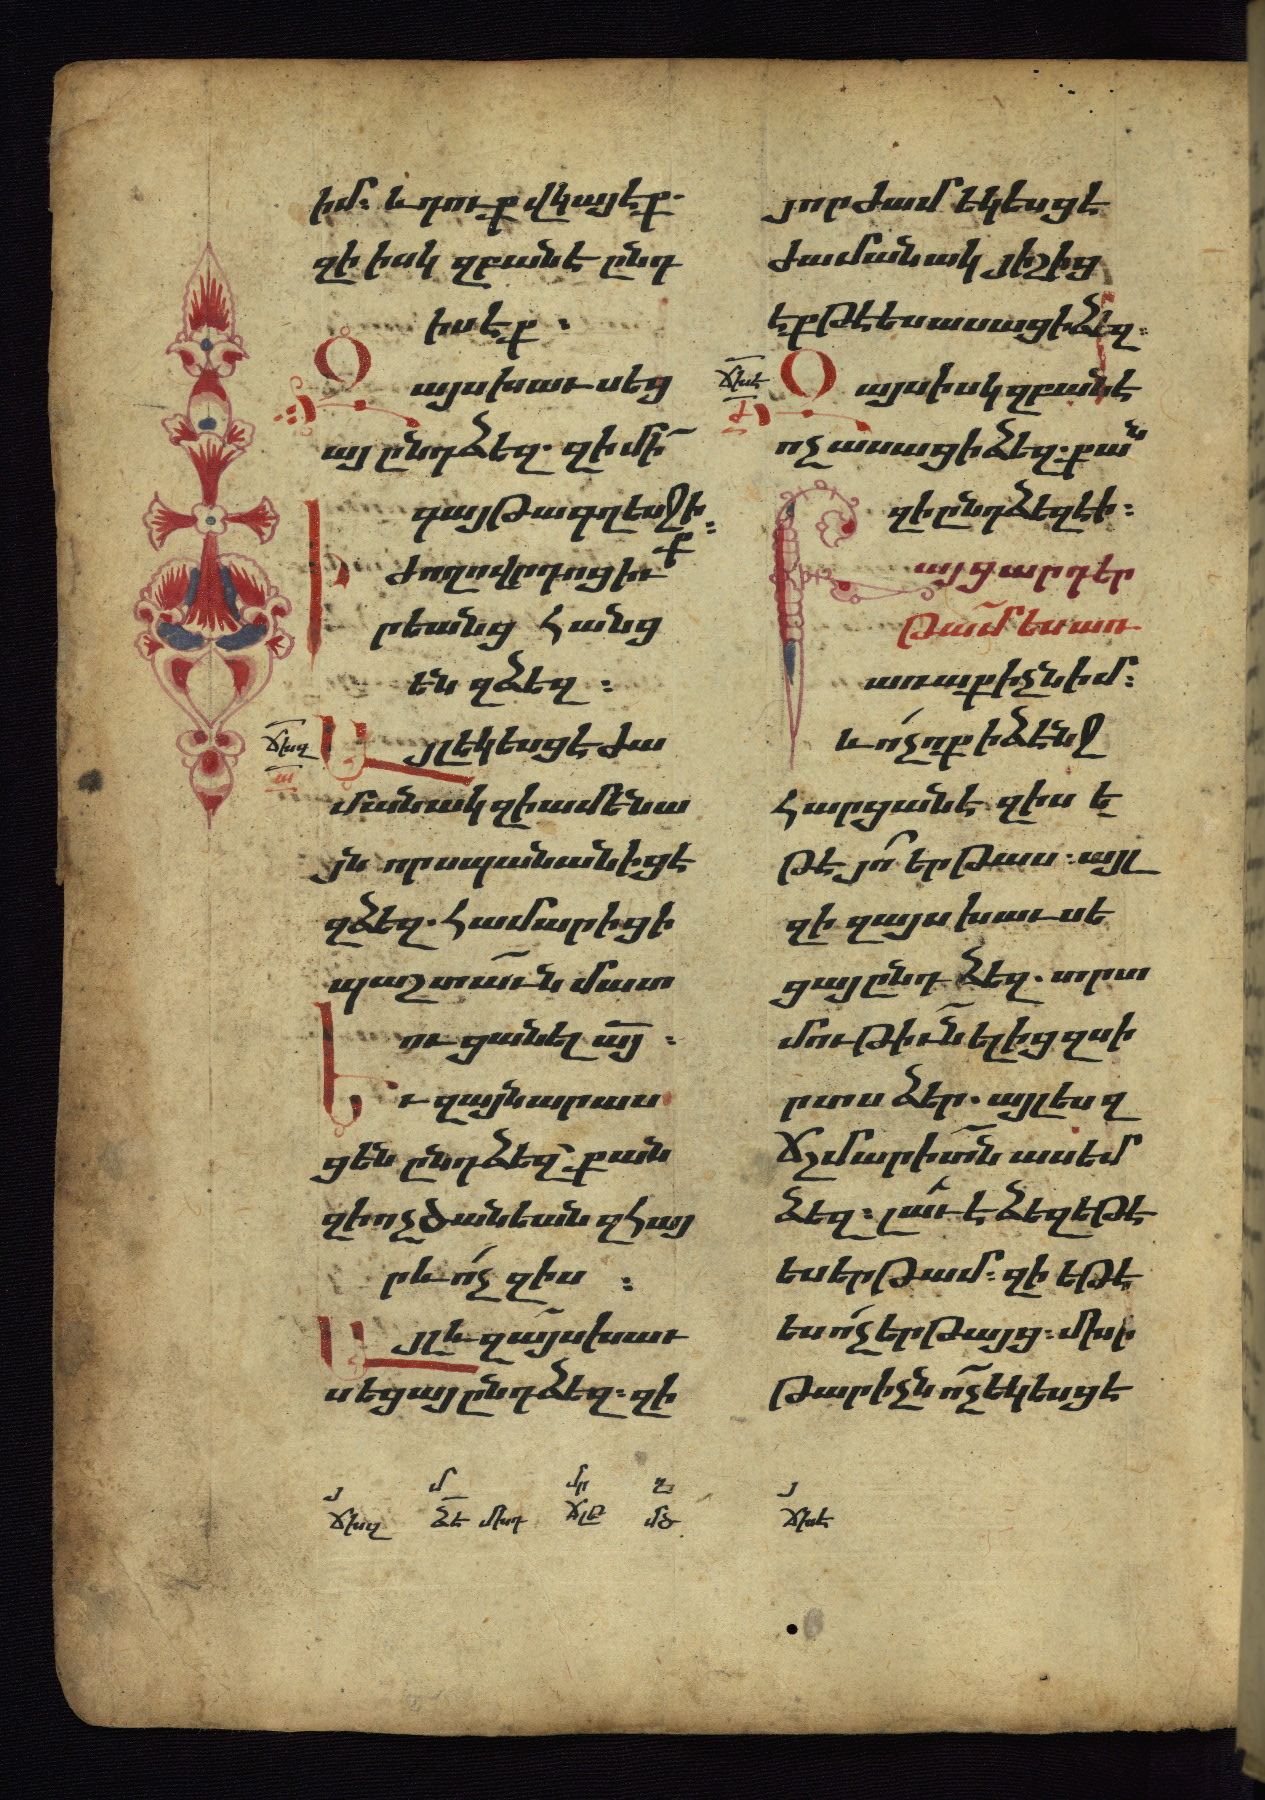 իմ։ և դուք վկայէք.
զի իսկ զբանէ ընդ
իս էք ։
Զայս խաւսեց
այ ընդ ձեզ. զի մի՛
գայթագղեսջի
ք ։
Ի ժողովրդոցիւ
րեանց հանց
են զձեզ ։
ճխզ
ա
Այլ եկեսցէ ժա
մանակ զի ամենա
յն որ սպանանիցէ
զձեզ. համարիցի
պաշտաւն մատ
ուցանել ած ։
Եւ զայն արաս
ցեն ընդ ձեզ. քան
զի ոչ ծանեան զհայ
ր և ո՛չ զիս ։
Այլ և զայս խաւ
սեցայ ընդ ձեզ։ զի
յորժամ եկեսցէ
ժամանակ յիշից
էք թէ ես ասացի ձեզ ։
ճխէ
ժ
Զայս իսկ զբանէ
ոչ ասացի ձեզ. քան
զի ընդ ձեզ էի ։
Բայց արդ եր
թամ ես առ
առաքիչն իմ ։
և ո՛չ ոք ի ձէնջ
հարցանէ զիս ե
թէ յո՛ երթաս ։ այլ
զի զայս խաւսե
ցայ ընդ ձեզ. տրտ
մութիւն ելից զսի
րտս ձեր. այլ ես զ
ճշմարիտն ասեմ
ձեզ ։ լաւ է ձեզ եթէ
ես երթամ ։ զի եթէ
ես ո՛չ երթայց ։ մխի
թարիչն ո՛չ եկեսցէ
յ մ մր ղ յ
ճխզ ձե մխդ ճլը մծ ճխէ